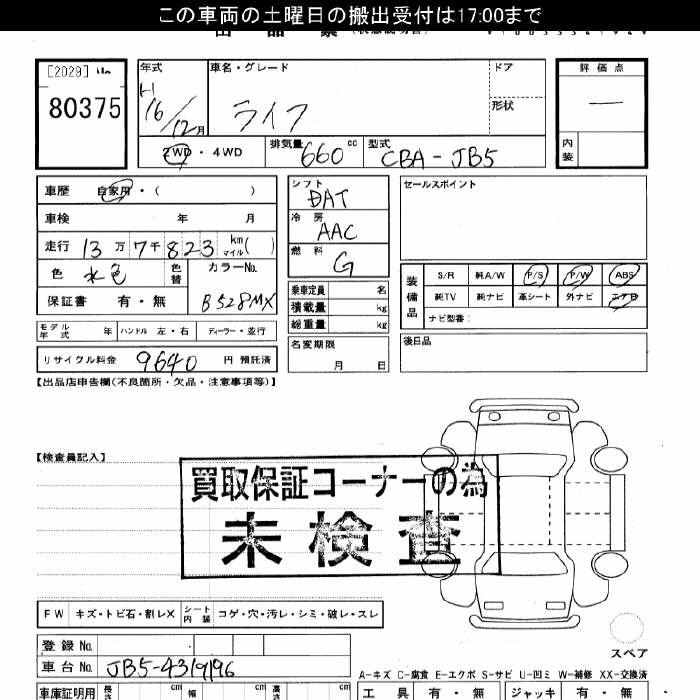 この車両の土曜日の搬出受付は17:00まで
[2029] No
80375
年式
H
16/12月
車名・グレード
ライフ
ドア
形状
評価点
―
内装
2WD・4WD
排気量 660 cc
型式 CBA-JB5
車歴 自家用・( )
車検 年 月
走行 13万7千823 km マイル( )
色 水色
色替
カラーNo. B528MX
保証書 有・無
シフト DAT
冷房 AAC
燃料 G
乗車定員 名
積載量 kg
総重量 kg
名変期限
月 日
セールスポイント
装備品
S/R 純A/W P/S P/W ABS
純TV 純ナビ 革シート 外ナビ エアB
ナビ型番:
後日品
モデル年式 年 ハンドル 左・右 ディーラー・並行
リサイクル料金 9640 円 預託済
【出品店申告欄(不良箇所・欠品・注意事項等)】
【検査員記入】
買取保証コーナーの為
未検査
FW キズ・トビ石・割レX シート内装 コゲ・穴・汚レ・シミ・破レ・スレ
登録No.
車台No. JB5-4319196
スペア
A-キズ C-腐食 E-エクボ S-サビ U-凹ミ W-補修 XX-交換済
車庫証明用 長さ cm 幅 cm 高さ cm
工具 有・無 ジャッキ 有・無